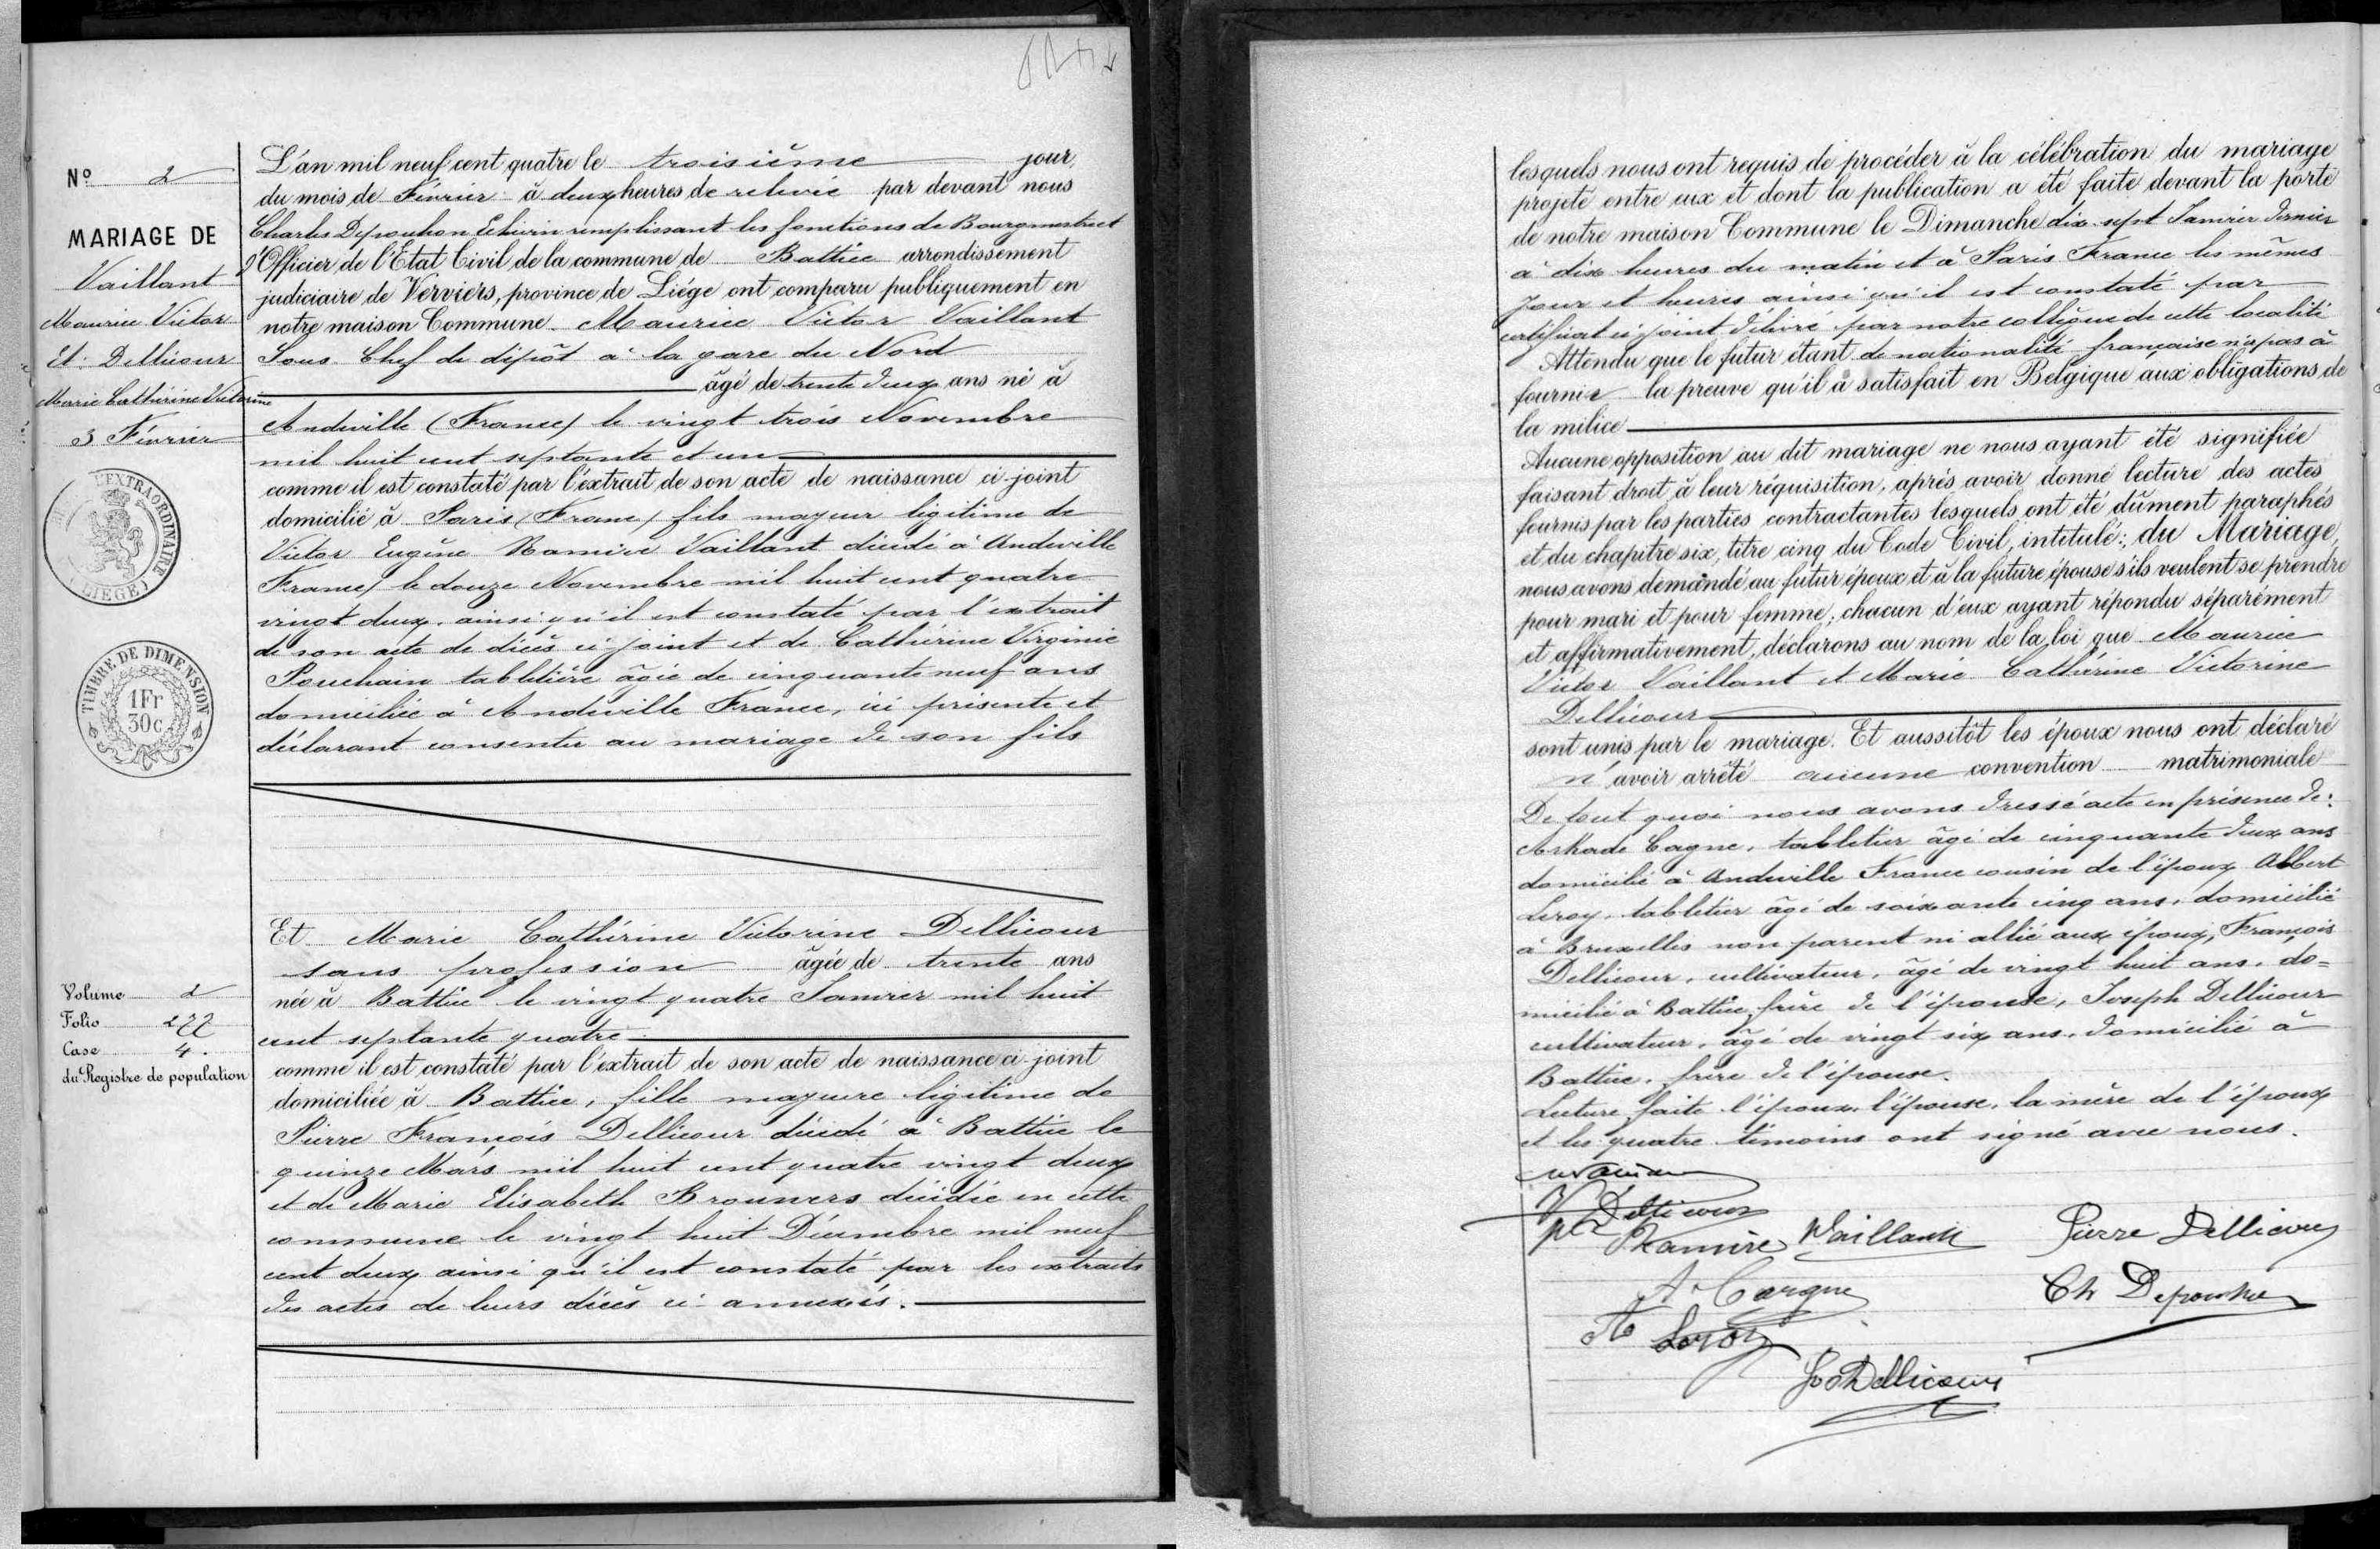 Nº 2
MARIAGE DE
Vaillant
Maurice Victor
Et Dellicour
Marie Cathérine Victorine
3 Février
L'EXTRAORDINAIRE
(LIÉGE)
TIMBRE DE DIMENSION
1Fr
30c
Volume 2
Folio 277
Case 4.
du Registre de population
L'an mil neuf cent quatre le troisième jour
du mois de Février à deux heures de relevée par devant nous
Charles Depouhon Echevin remplissant les fonctions de Bourgmestre et
d'Officier de l'Etat Civil de la commune de Battice arrondissement
judiciaire de Verviers, province de Liége ont comparu publiquement en
notre maison Commune. Maurice Victor Vaillant
Sous Chef de dépôt à la gare du Nord
âgé de trente deux ans né à
Andeville (France) le vingt trois Novembre
mil huit cent septante et un
comme il est constaté par l'extrait de son acte de naissance ci-joint
domicilié à Paris (France) fils majeur légitime de
Victor Eugène Ramire Vaillant décédé à Andeville
France) le douze Novembre mil huit cent quatre
vingt deux, ainsi qu'il est constaté par l'extrait
de son acte de décès ci-joint et de Cathérine Virginie
Pouchain tabletière âgée de cinquante neuf ans
domiciliée à Andeville France, ici présente et
déclarant consentir au mariage de son fils
Et Marie Cathérine Victorine Dellicour
sans profession âgée de trente ans
née à Battice le vingt quatre Janvier mil huit
cent septante quatre
comme il est constaté par l'extrait de son acte de naissance ci-joint
domiciliée à Battice, fille majeure légitime de
Pierre François Dellicour décédé à Battice le
quinze Mars mil huit cent quatre vingt deux
et de Marie Elisabeth Brouwers décédée en cette
commune le vingt huit Décembre mil neuf
cent deux ainsi qu'il est constaté par les extraits
des actes de leurs décès ci-annexés.
lesquels nous ont requis de procéder à la célébration du mariage
projeté entre eux et dont la publication a été faite devant la porte
de notre maison Commune le Dimanche dix-sept Janvier dernier
à dix heures du matin et à Paris France les mêmes
jour et heures ainsi qu'il est constaté par
certificat ci-joint délivré par notre collègue de cette localité
Attendu que le futur étant de nationalité française n'a pas à
fournir la preuve qu'il a satisfait en Belgique aux obligations de
la milice
Aucune opposition au dit mariage ne nous ayant été signifiée
faisant droit à leur réquisition, après avoir donné lecture des actes
fournis par les parties contractantes lesquels ont été dûment paraphés
et du chapitre six, titre cinq du Code Civil, intitulé: du Mariage,
nous avons demandé au futur époux et à la future épouse s'ils veulent se prendre
pour mari et pour femme; chacun d'eux ayant répondu séparément
et affirmativement, déclarons au nom de la loi que Maurice
Victor Vaillant et Marie Cathérine Victorine
Dellicour
sont unis par le mariage. Et aussitôt les époux nous ont déclaré
n'avoir arrêté aucune convention matrimoniale
De tout quoi nous avons dressé acte en présence de:
Arkade Cagne, tabletier âgé de cinquante deux ans
domicilié à Andeville France cousin de l'époux, Albert
Leroy, tabletier âgé de soixante cinq ans, domicilié
à Bruxelles non parent ni allié aux époux, François
Dellicour, cultivateur, âgé de vingt huit ans, do=
micilié à Battice, frère de l'épouse, Joseph Dellicour
cultivateur, âgé de vingt six ans, domicilié à
Battice, frère de l'épouse.
Lecture faite l'époux, l'épouse, la mère de l'époux
et les quatre témoins ont signé avec nous.
V Dellicour
Ramire Vaillant Pierre Dellicour
A Cargne Ch Depouhon
A Leroy
Jos Dellicour